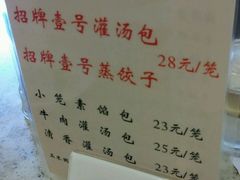 招牌壹号灌汤包
28元/笼
招牌壹号蒸饺子
小笼素馅包 23元/笼
牛肉灌汤包 25元/笼
清香灌汤包 23元/笼